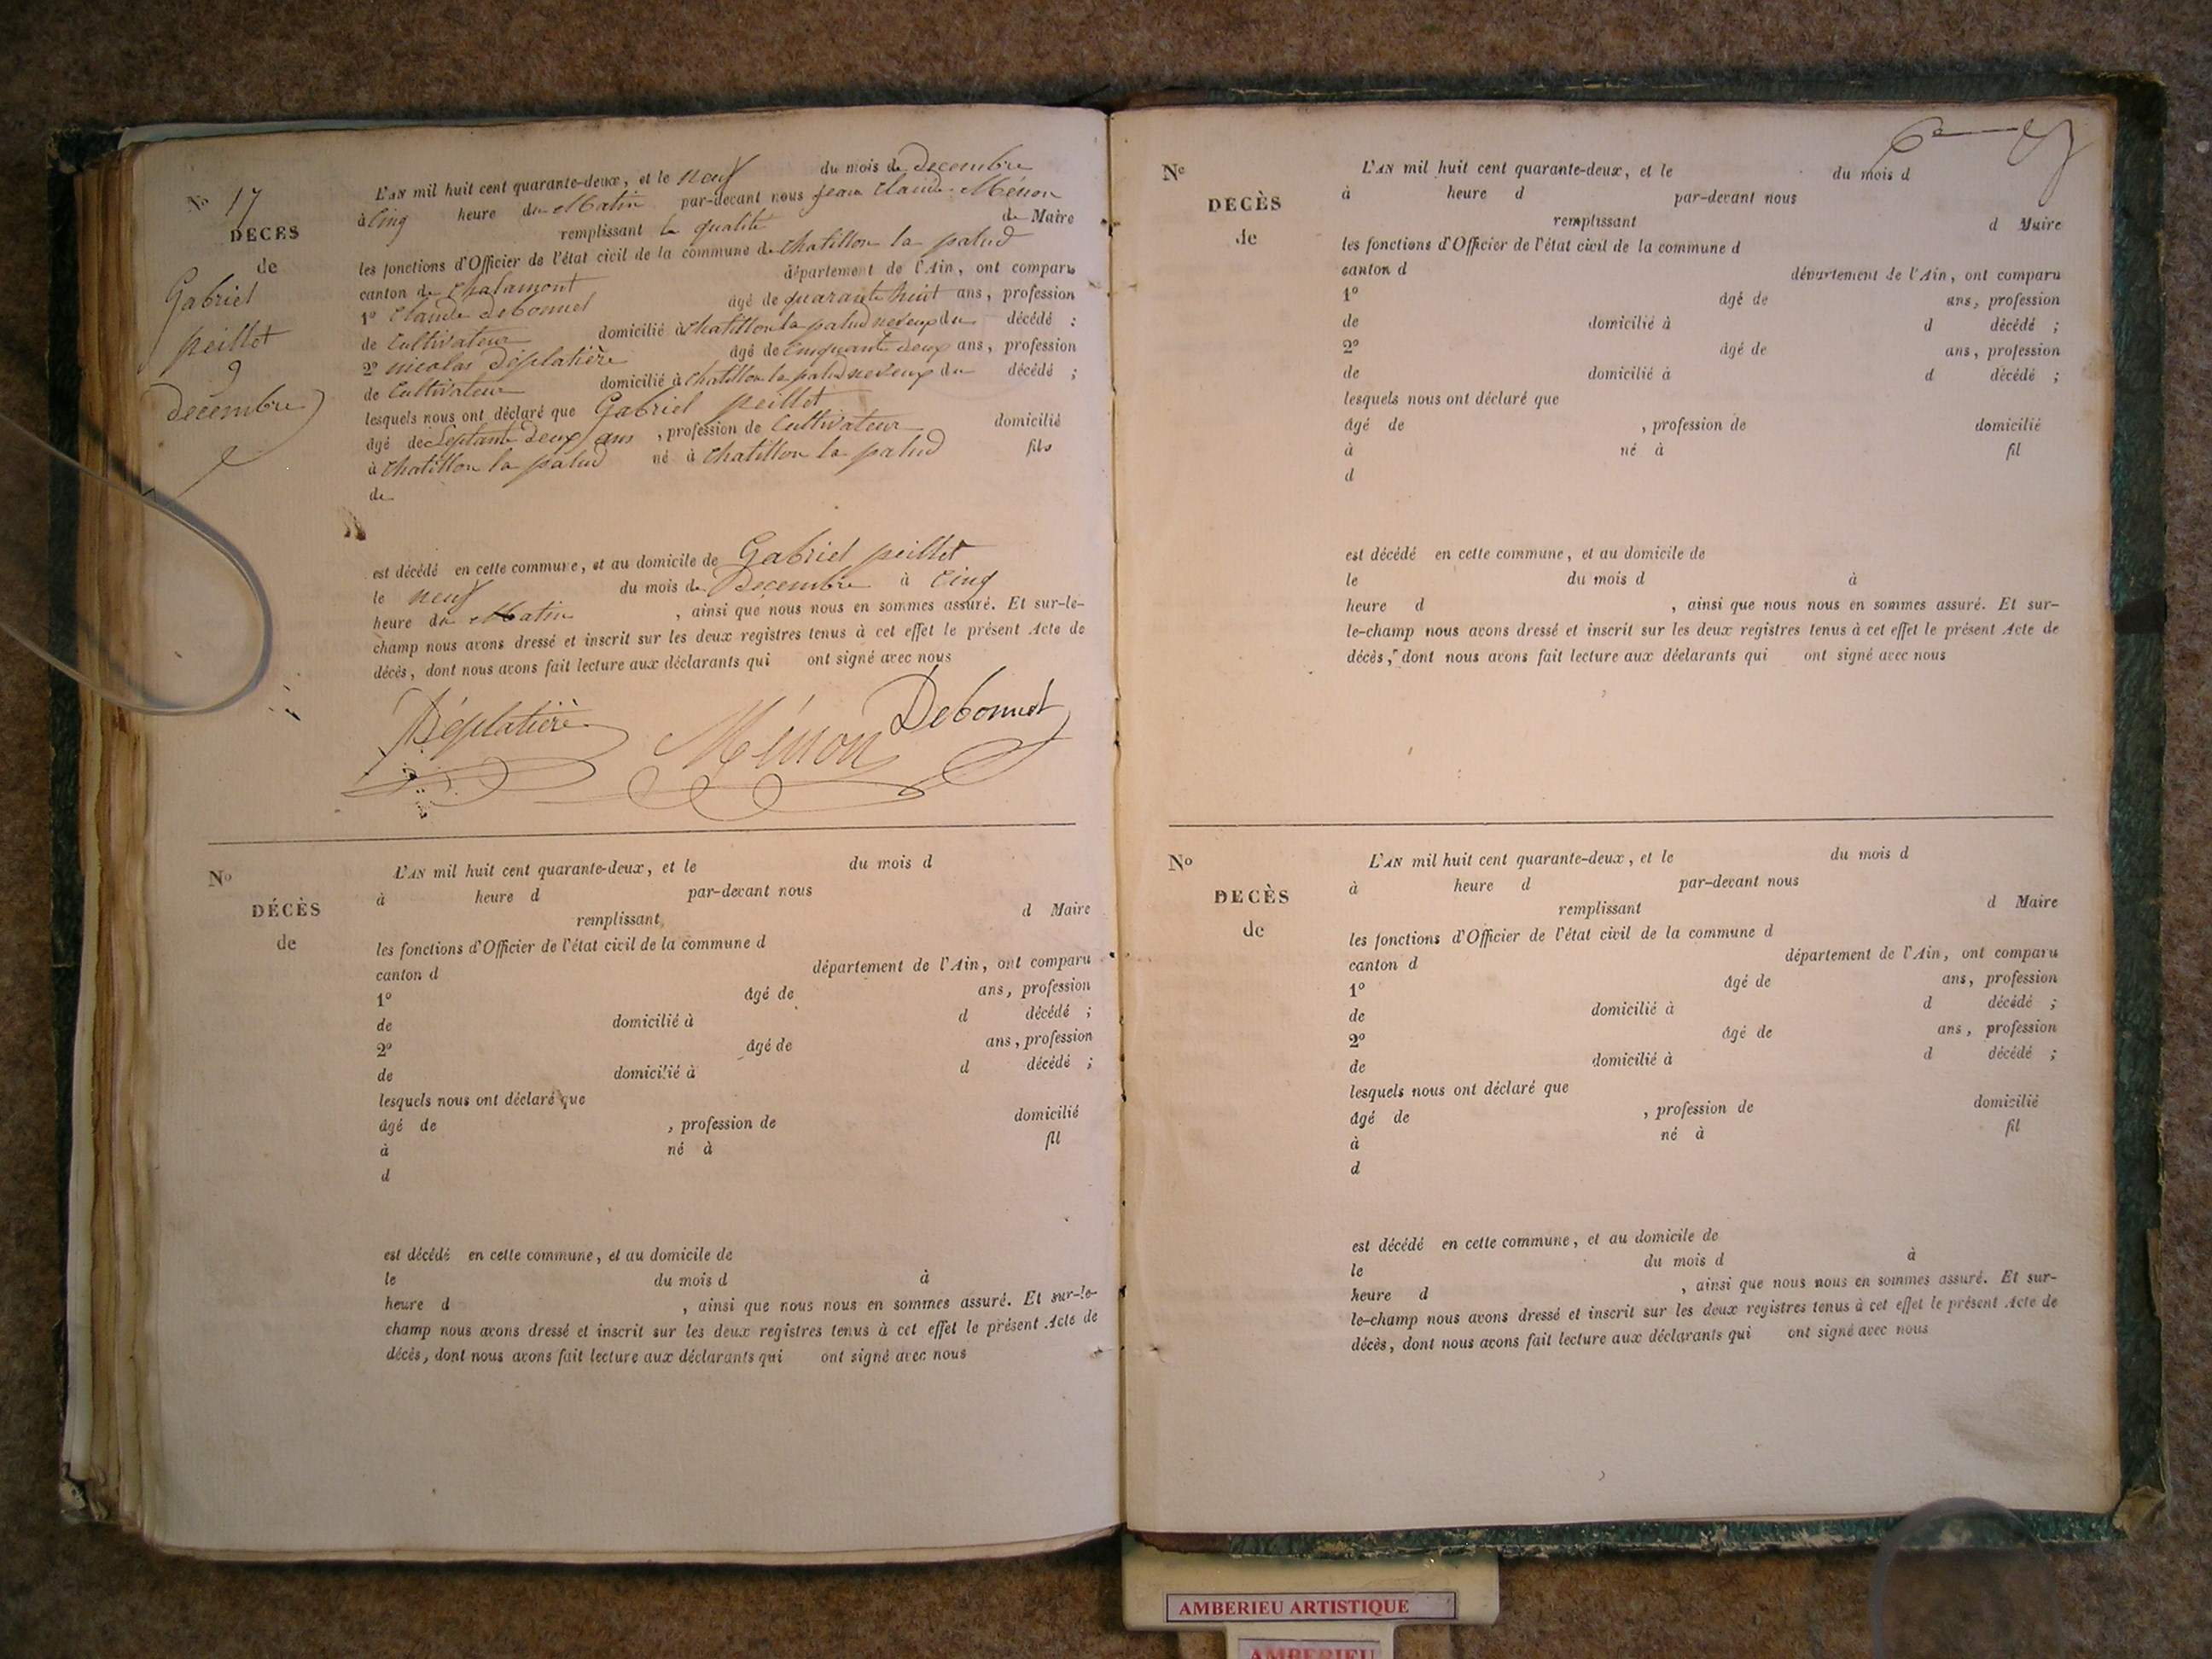 No 17
DÉCÈS
de
Gabriel
peillet
9
Decembre
L'AN mil huit cent quarante-deux, et le neuf du mois de Decembre
à Cinq heure du Matin par-devant nous jean Claude Ménon
remplissant la qualité de Maire
les fonctions d'Officier de l'état civil de la commune de chatillon la palud
canton de chalamont département de l'Ain, ont comparu
1º Claude Debonnet âgé de quarante huit ans, profession
de Cultivateur domicilié à chatillon la palud neveux du décédé ;
2º nicolas Déplatière âgé de Cinquante Deux ans, profession
de Cultivateur domicilié à chatillon la palud neveux du décédé ;
lesquels nous ont déclaré que Gabriel peillet
âgé de Septante Deux ans , profession de Cultivateur domicilié
à chatillon la palud né à chatillon la palud fils
de
est décédé en cette commune, et au domicile de Gabriel peillet
le neuf du mois de Decembre à Cinq
heure du Matin , ainsi que nous nous en sommes assuré. Et sur-le-
champ nous avons dressé et inscrit sur les deux registres tenus à cet effet le présent Acte de
décès, dont nous avons fait lecture aux déclarants qui ont signé avec nous
Déplatière Ménon Debonnet
No
DÉCÈS
de
L'AN mil huit cent quarante-deux, et le du mois d
à heure d par-devant nous
remplissant d Maire
les fonctions d'Officier de l'état civil de la commune d
canton d département de l'Ain, ont comparu
1º âgé de ans, profession
de domicilié à d décédé ;
2º âgé de ans, profession
de domicilié à d décédé ;
lesquels nous ont déclaré que
âgé de , profession de domicilié
à né à fil
d
est décédé en cette commune, et au domicile de
le du mois d à
heure d , ainsi que nous nous en sommes assuré. Et sur-le-
champ nous avons dressé et inscrit sur les deux registres tenus à cet effet le présent Acte de
décès, dont nous avons fait lecture aux déclarants qui ont signé avec nous
No
DECÈS
de
L'AN mil huit cent quarante-deux, et le du mois d
à heure d par-devant nous
remplissant d Maire
les fonctions d'Officier de l'état civil de la commune d
canton d département de l'Ain, ont comparu
1º âgé de ans, profession
de domicilié à d décédé ;
2º âgé de ans, profession
de domicilié à d décédé ;
lesquels nous ont déclaré que
âgé de , profession de domicilié
à né à fil
d
est décédé en cette commune, et au domicile de
le du mois d à
heure d , ainsi que nous nous en sommes assuré. Et sur-
le-champ nous avons dressé et inscrit sur les deux registres tenus à cet effet le présent Acte de
décès, dont nous avons fait lecture aux déclarants qui ont signé avec nous
No
DECÈS
de
L'AN mil huit cent quarante-deux, et le du mois d
à heure d par-devant nous
remplissant d Maire
les fonctions d'Officier de l'état civil de la commune d
canton d département de l'Ain, ont comparu
1º âgé de ans, profession
de domicilié à d décédé ;
2º âgé de ans, profession
de domicilié à d décédé ;
lesquels nous ont déclaré que
âgé de , profession de domicilié
à né à fil
d
est décédé en cette commune, et au domicile de
le du mois d à
heure d , ainsi que nous nous en sommes assuré. Et sur-
le-champ nous avons dressé et inscrit sur les deux registres tenus à cet effet le présent Acte de
décès, dont nous avons fait lecture aux déclarants qui ont signé avec nous
AMBERIEU ARTISTIQUE
AMBERIEU